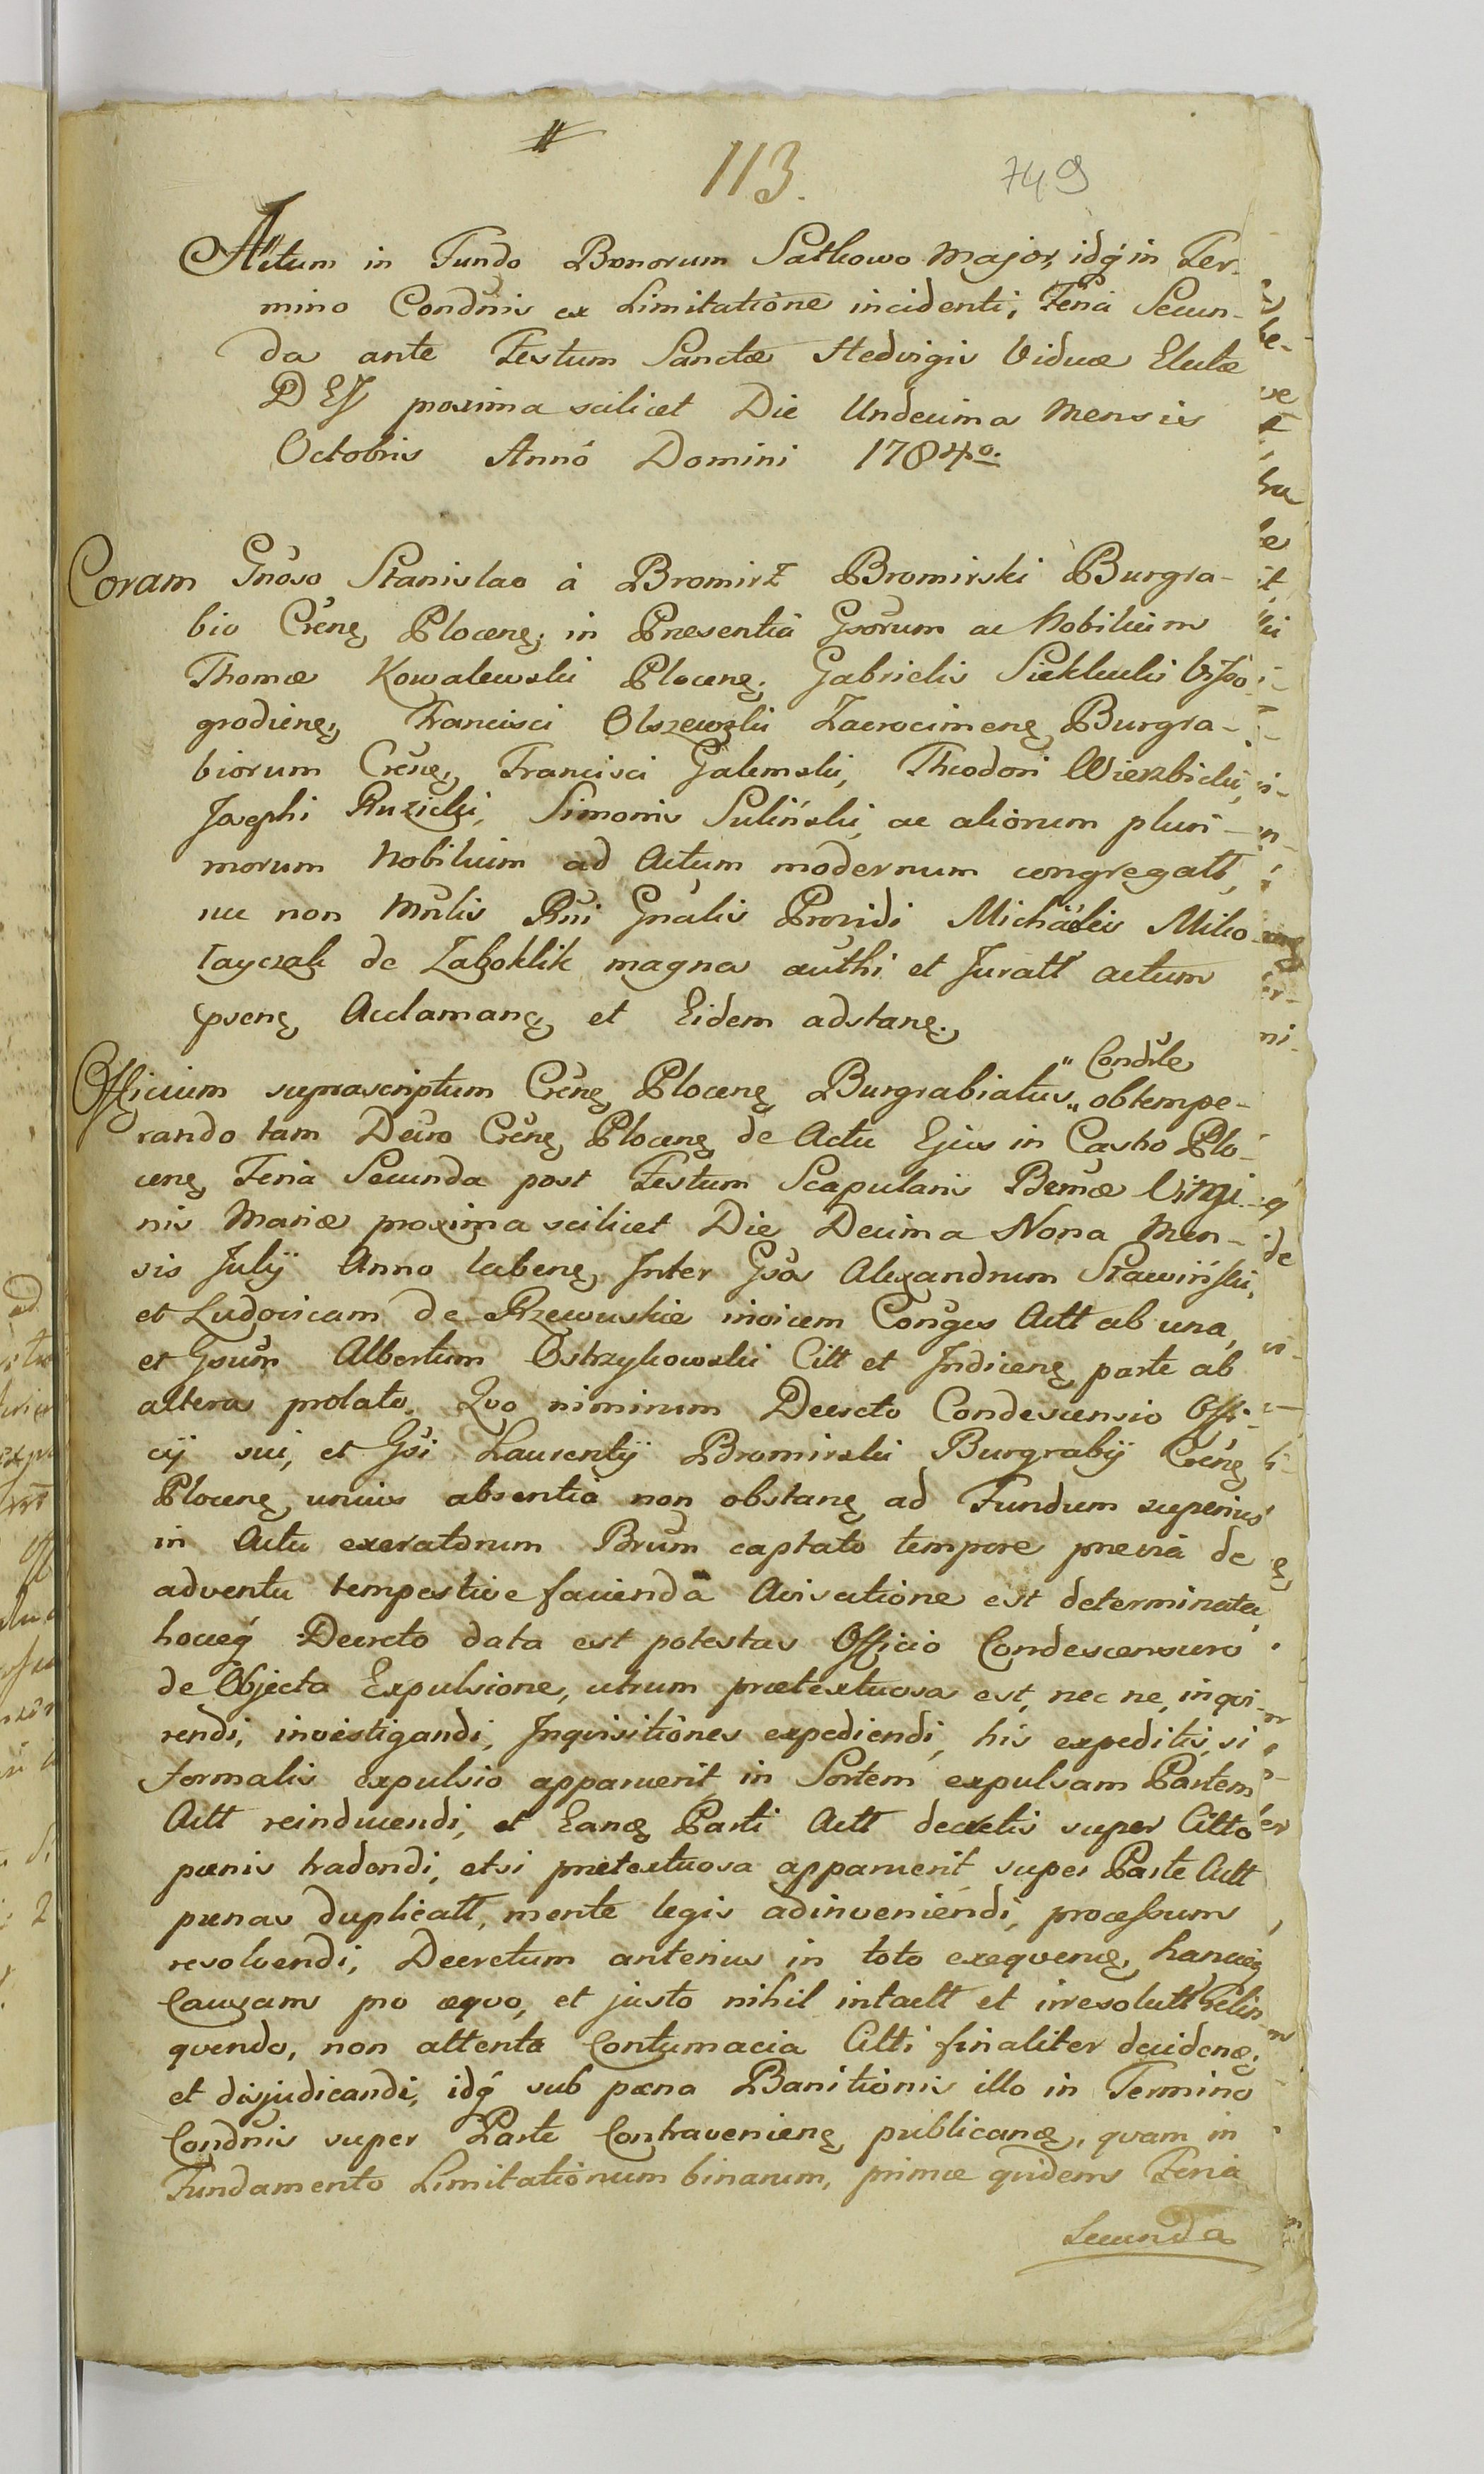 #
113.
749
Actum in Fundo Bonorum Satkowo Major, idq́ in Ter-
mino Condn̄is ex Limitatione incidenti, Feria Secun-
da ante Festum Sanctæ Hedvigis Viduæ Electæ
DEJ proxima scilicet Die Undecima Mensis
Octobris Annó Domini 1784º.
Coram Gn̄oso Stanislao à Bromirz Bromirski Burgra-
bio Crēnę Plocenę, in Præsentiâ Gsōrum ac Nobilium
Thomæ Kowalewski Plocenę, Gabrielis Siekłucki Visso-
grodienę, Francisci Olszewski Zacrocimenę Burgra-
biorum Crēnę, Francisci Galemski, Theodori Wierzbicki,
Josephi Ruzicki, Simonis Suliński, ac aliorum pluri-
morum Nobilium ad Actum modernum congregatt,
nec non Mn̄lis Rn̄i Gn̄alis Providi Michäelis Miko
łayczak de Zabłoklik magna auth̄i et Juratt actum
pśenę Acclamanę et Eidem adstanę.
Officium suprascriptum Crēnę Plocenę Burgrabiatus " Condn̄le " obtempe-
rando tam Decr̄o Crēnę Plocenę de Actu Ejus in Castro Plo-
cenę Feria Secunda post Festum Scapularis Bēmæ Virgi-
nis Mariæ proxima scilicet Die Decima Nona Men-
sis Julÿ Anno labenę, Inter Gsōs Alexandrum Sławiński,
et Ludovicam de Rzewuskie invicem Coņ̄ges Actt ab una,
et Gsūm Albertum Ostrzykowski Citt et Indicenę parte ab
altera prolato, Quo nimirum Decreto Condescensio Offi-
cÿ sui, et Gs̄i Laurentÿ Bromirski Burgrabÿ Crēnę
Plocenę unius absentia non obstanę ad Fundum superius
in Actu exeratorum Br̄um captato tempore prævia de
adventu tempestive facienda Avisatione est determinata,
hocq́ Decreto data est potestas Officio Condescensuro
de Objecta Expulsione, utrum prætextuosa est, nec ne, inqvi-
rendi, investigandi, Inqvisitiones expediendi, his expeditis, si
formalis expulsio apparuerit, in Sortem expulsam Partem
Actt reinducendi, et Eanę Parti Actt decretis super Citto
pœnis tradendi, etsi prætextuosa apparuerit, super Parte Actt
pœnas duplicatt, mente legis adinveniendi, processum
resolvendi, Decretum anterius in toto exeqvenę, hancq́
Causam pro æqvo, et justo nihil intactt et irresolutt relin
qvendo, non attenta Contumacia Citti finaliter decidenę,
et disjudicandi, idq́ sub pœna Banitionis illo in Termino
Condn̄is super Parte Contravenienę publicanę, qvam in
Fundamento Limitationum binarum, primæ qvidem Feria
Secunda